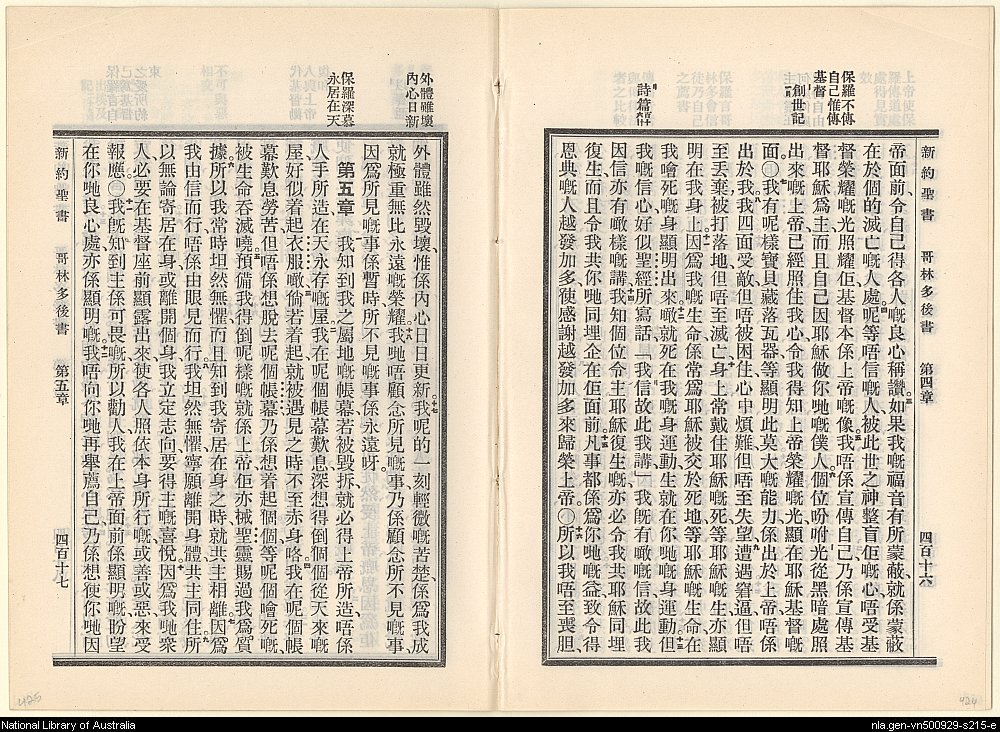 新約聖書 哥林多後書 第四章 四百十六
保羅不傳
自己惟傳
基督
創世記
詩篇
帝面前、令自己得各人嘅良心稱讚。如果我嘅福音有所蒙蔽、就係蒙蔽
在於個的滅亡嘅人處。呢等唔信嘅人、被此世之神整盲佢嘅心、唔受基
督榮耀嘅光照耀佢、基督本係上帝嘅像。我唔係宣傳自己、乃係宣傳基
督耶穌爲主、而且自己因耶穌做你哋嘅僕人。個位吩咐光從黑暗處照
出來嘅上帝、已經照住我心、令我得知上帝榮耀嘅光顯在耶穌基督嘅
面。我有呢樣寶貝藏落瓦器、等顯明此莫大嘅能力係出於上帝、唔係
出於我。我四面受敵、但唔被困住、心中煩難、但唔至失望、遭遇窘逼、但唔
至丢棄、被打落地、但唔至滅亡、身上常戴住耶穌嘅死、等耶穌嘅生亦顯
明在我身上。因爲我嘅生命係常爲耶穌被交於死地、等耶穌嘅生命在
我噲死嘅身顯明出來。噉就死在我嘅身運動、生就在你哋嘅身運動。但
我嘅信心好似聖經所寫話、「我信故此我講」、我既有噉嘅信、故此我
因信亦有噉樣嘅講、我知個位令主耶穌復生嘅、亦必令我共耶穌同埋
復生、而且令我共你哋同埋企在佢面前。凡事都係爲你哋嘅益、致令得
恩典嘅人越發加多、使感謝越發加多、來歸榮上帝。所以我唔至喪胆、
外體雖壞
內心日新
保羅深慕
永居在天
外體雖然毀壞、惟係內心日日更新。我呢的一刻輕微嘅苦楚、係爲我成
就極重無比永遠嘅榮耀。我哋唔顧念所見嘅事、乃係顧念所不見嘅事、
因爲所見嘅事係暫時、所不見嘅事係永遠呀。
第五章 我知到我之屬地嘅帳幕若被毀拆、就必得上帝所造、唔係
人手所造、在天永存嘅屋。我在呢個帳幕歎息、深想得倒個個從天來嘅
屋、好似着起衣服噉。倘若着起、就被遇見之時不至赤身咯。我在呢個帳
幕歎息勞苦、但唔係想脫去呢個帳幕、乃係想着起個個、等呢個噲死嘅
被生命吞滅嘵。預備我得倒呢樣嘅就係上帝、佢亦將聖靈賜過我爲質
據。所以我常時坦然無懼、而且知到我寄居在身之時、就共主相離、因爲
我由信而行、唔係由眼見而行。我坦然無懼、寧願離開身體、共主同住。所
以無論寄居在身、或離開個身、我立定志向要得主嘅喜悅。因爲我哋衆
人、必要在基督座前顯露出來、使各人照依本身所行嘅、或善或惡來受
報應。我既知到主係可畏嘅、所以勸人、我在上帝面前係顯明嘅、盼望
在你哋良心處、亦係顯明嘅。我唔向你哋再舉薦自己、乃係想使你哋因
新約聖書 哥林多後書 第五章 四百十七
425
424
National Library of Australia
nla.gen-vn500929-s215-e